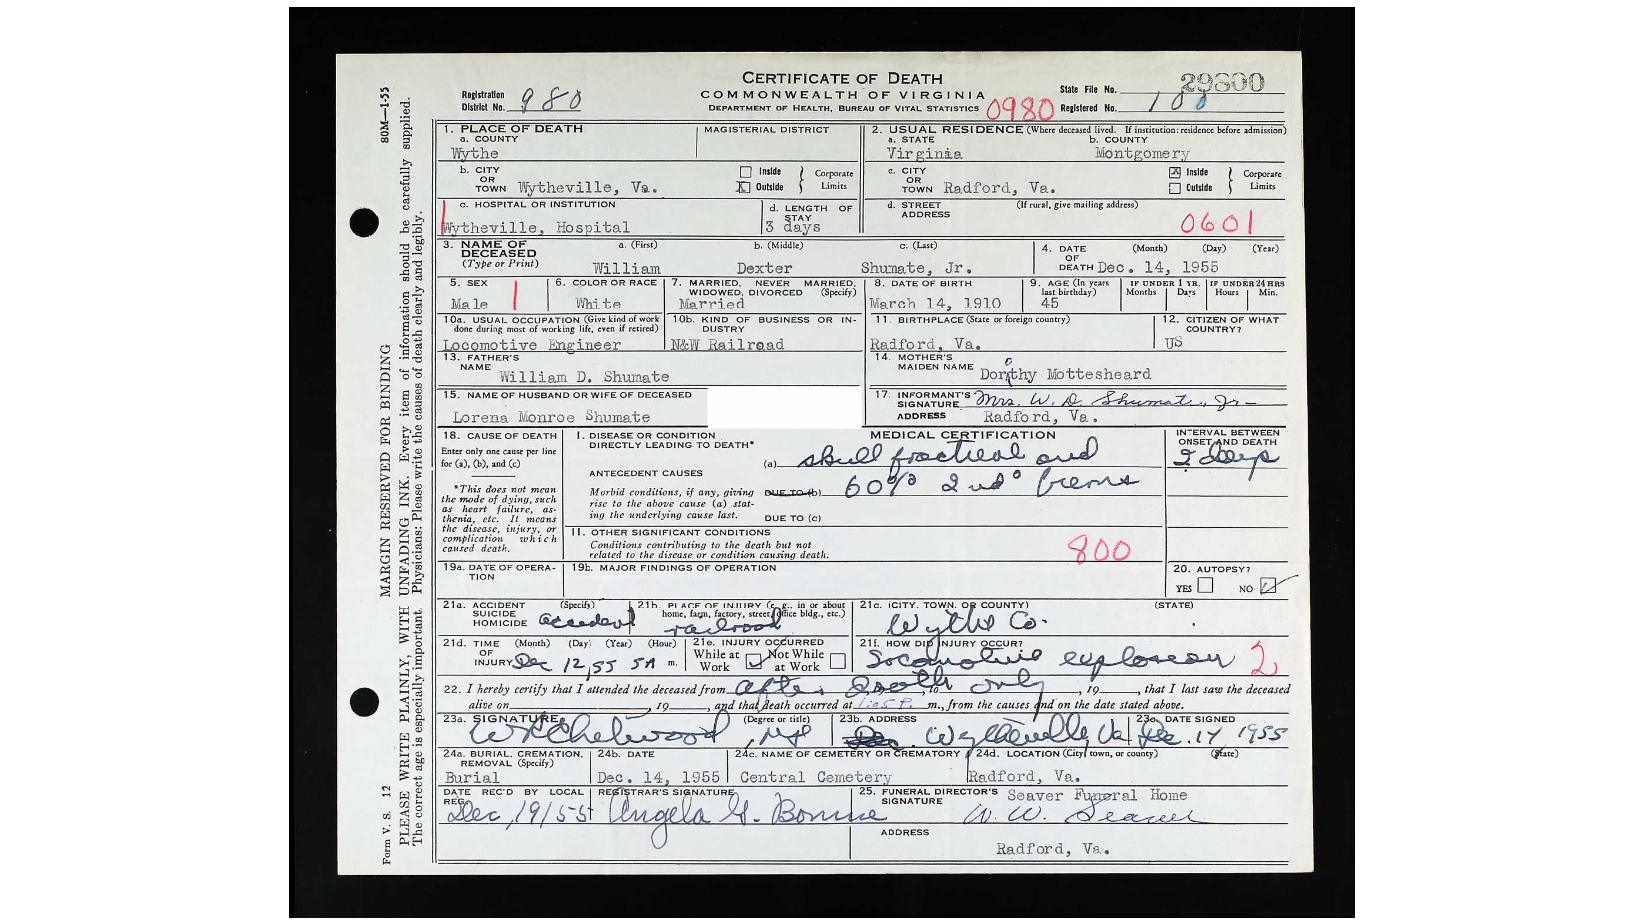 CERTIFICATE OF DEATH
COMMONWEALTH OF VIRGINIA
DEPARTMENT OF HEALTH, BUREAU OF VITAL STATISTICS
0980
Registration District No. 980
State File No. 29800
Registered No. 100
80M—1-55
MARGIN RESERVED FOR BINDING
PLEASE WRITE PLAINLY, WITH UNFADING INK. Every item of information should be carefully supplied.
The correct age is especially important. Physicians: Please write the causes of death clearly and legibly.
Form V. S. 12
1. PLACE OF DEATH
a. COUNTY
Wythe
MAGISTERIAL DISTRICT
2. USUAL RESIDENCE (Where deceased lived. If institution: residence before admission)
a. STATE
Virginia
b. COUNTY
Montgomery
b. CITY OR TOWN Wytheville, Va.
Inside
X Outside
Corporate Limits
c. CITY OR TOWN Radford, Va.
X Inside
Outside
Corporate Limits
c. HOSPITAL OR INSTITUTION
Wytheville, Hospital
d. LENGTH OF STAY
3 days
d. STREET ADDRESS
(If rural, give mailing address)
0601
3. NAME OF DECEASED
(Type or Print)
a. (First)
William
b. (Middle)
Dexter
c. (Last)
Shumate, Jr.
4. DATE OF DEATH
(Month) (Day) (Year)
Dec. 14, 1955
5. SEX
Male
6. COLOR OR RACE
White
7. MARRIED, NEVER MARRIED, WIDOWED, DIVORCED (Specify)
Married
8. DATE OF BIRTH
March 14, 1910
9. AGE (In years last birthday)
45
IF UNDER 1 YR.
Months Days
IF UNDER 24 HRS
Hours Min.
10a. USUAL OCCUPATION (Give kind of work done during most of working life, even if retired)
Locomotive Engineer
10b. KIND OF BUSINESS OR INDUSTRY
N&W Railroad
11. BIRTHPLACE (State or foreign country)
Radford, Va.
12. CITIZEN OF WHAT COUNTRY?
US
13. FATHER'S NAME
William D. Shumate
14. MOTHER'S MAIDEN NAME
Dorothy Mottesheard
15. NAME OF HUSBAND OR WIFE OF DECEASED
Lorena Monroe Shumate
17. INFORMANT'S SIGNATURE Mrs. W. D. Shumate, Jr.
ADDRESS Radford, Va.
18. CAUSE OF DEATH
Enter only one cause per line for (a), (b), and (c)
*This does not mean the mode of dying, such as heart failure, asthenia, etc. It means the disease, injury, or complication which caused death.
MEDICAL CERTIFICATION
I. DISEASE OR CONDITION DIRECTLY LEADING TO DEATH*
(a) skull fractured and
ANTECEDENT CAUSES
Morbid conditions, if any, giving rise to the above cause (a) stating the underlying cause last.
DUE TO (b) 60% 2nd° burns
DUE TO (c)
INTERVAL BETWEEN ONSET AND DEATH
2 days
II. OTHER SIGNIFICANT CONDITIONS
Conditions contributing to the death but not related to the disease or condition causing death.
800
19a. DATE OF OPERATION
19b. MAJOR FINDINGS OF OPERATION
20. AUTOPSY?
YES NO
21a. ACCIDENT SUICIDE HOMICIDE (Specify)
accident
21b. PLACE OF INJURY (e. g., in or about home, farm, factory, street, office bldg., etc.)
railroad
21c. (CITY, TOWN, OR COUNTY) (STATE)
Wythe Co.
21d. TIME OF INJURY (Month) (Day) (Year) (Hour)
Dec 12, 55 5A m.
21e. INJURY OCCURRED
While at Work
Not While at Work
21f. HOW DID INJURY OCCUR?
Locomotive explosion
2
22. I hereby certify that I attended the deceased from After Death only, to, 19, that I last saw the deceased
alive on, 19, and that death occurred at 1:05 P. m., from the causes and on the date stated above.
23a. SIGNATURE (Degree or title)
MD
23b. ADDRESS
Wytheville Va
23c. DATE SIGNED
Dec. 14 1955
24a. BURIAL, CREMATION, REMOVAL (Specify)
Burial
24b. DATE
Dec. 14, 1955
24c. NAME OF CEMETERY OR CREMATORY
Central Cemetery
24d. LOCATION (City, town, or county) (State)
Radford, Va.
DATE REC'D BY LOCAL REG.
Dec, 19/55
REGISTRAR'S SIGNATURE
Angela G.
25. FUNERAL DIRECTOR'S SIGNATURE Seaver Funeral Home
W. W. Seaver
ADDRESS
Radford, Va.